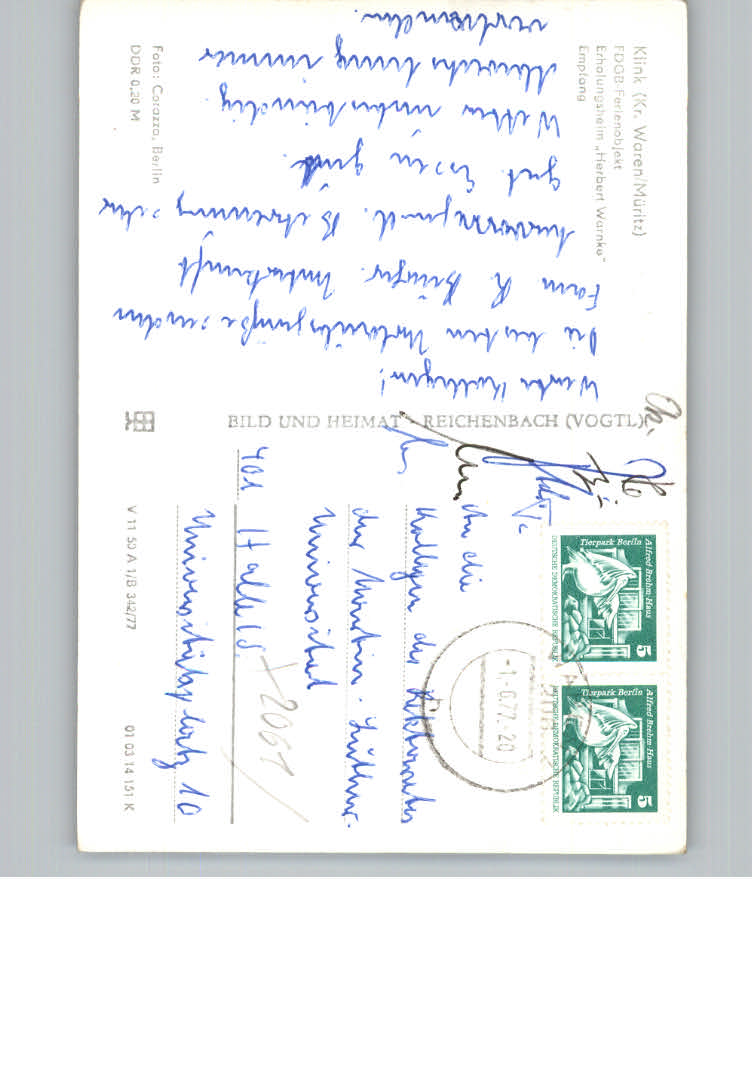 Klink (Kr. Waren/Müritz)
FDGB-Ferienobjekt
Erholungsheim „Herbert Warnke"
Empfang
Werte Kollegen!
Die besten Urlaubsgrüße senden
Fam. R. Krüger. Unterkunft
hervorragend. Betreuung sehr
gut. Essen gut.
Wetter unbeständig
Abwechslung immer
vorhanden.
Foto: Corazza, Berlin
DDR 0,20 M
BILD UND HEIMAT REICHENBACH (VOGTL)
An die
Kollegen des Rektorates
der Martin-Luther-
Universität
401 Halle/S.
Universitätsplatz 10
+2061
Alfred-Brehm-Haus
Tierpark Berlin
5
DEUTSCHE DEMOKRATISCHE REPUBLIK
Alfred-Brehm-Haus
Tierpark Berlin
5
DEUTSCHE DEMOKRATISCHE REPUBLIK
-1.-6.77.-20
V 11 50 A 1/B 342/77
01 03 14 151 K